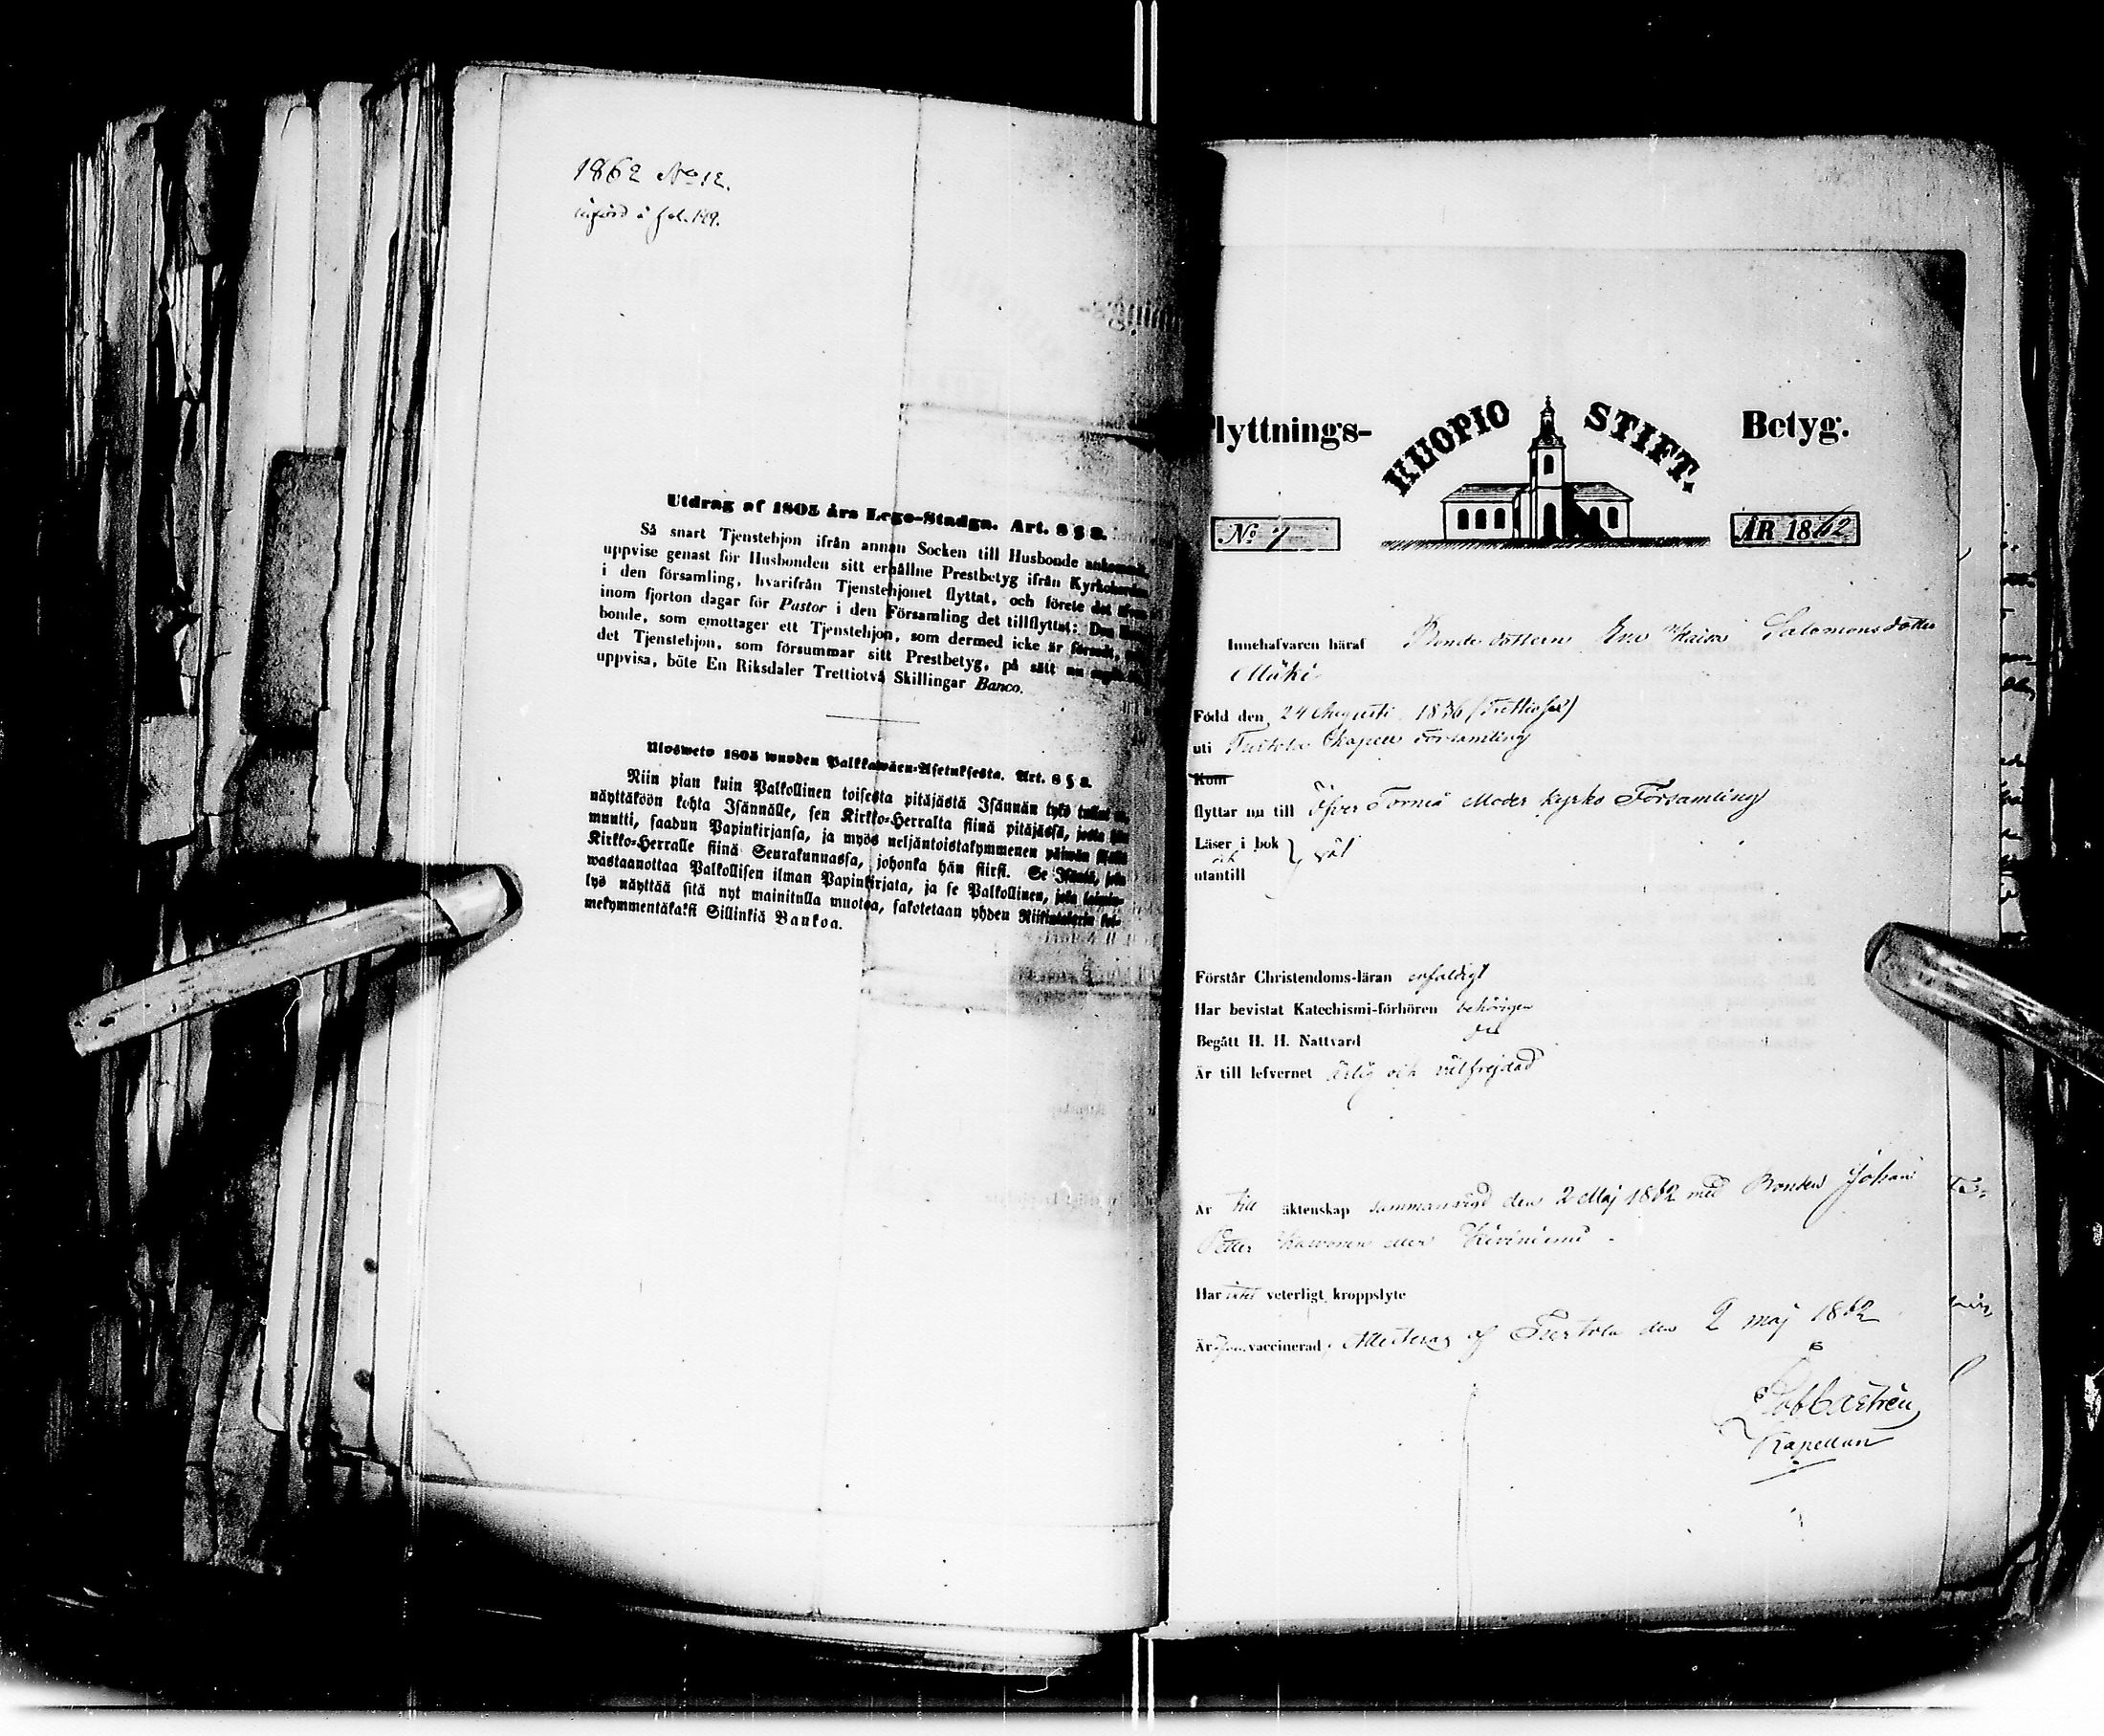 1862 No 12.
införd å fol. 149.
Utdrag af 1805 års Lego-Stadga. Art. 8 § 2.
Så snart Tjenstehjon ifrån annan Socken till Husbonde ankommit,
uppvise genast för Husbonden sitt erhållne Prestbetyg ifrån Kyrkoherden
i den församling, hvarifrån Tjenstehjonet flyttat, och förete det äfven
inom fjorton dagar för Pastor i den Församling det tillflyttat: Den Hus-
bonde, som emottager ett Tjenstehjon, som dermed icke är försedt,
det Tjenstehjon, som försummar sitt Prestbetyg, på sätt nu
uppvisa, böte En Riksdaler Trettiotvå Skillingar Banco.
Ulosweto 1805 wuoden Palkkawäen-Asetuksesta. Art. 8 § 2.
Niin pian kuin Palkollinen toisesta pitäjästä Isännän tykö tullut
näyttäköön kohta Isännälle, sen Kirkko-Herralta siinä pitäjässä, josta hän
muutti, saadun Papinkirjansa, ja myös neljäntoistakymmenen päiwän sisällä
Kirkko-Herralle siinä Seurakunnassa, johonka hän siirsi. Se Isäntä, joka
wastaanottaa Palkollisen ilman Papinkirjata, ja se Palkollinen, joka laimin-
lyö näyttää sitä nyt mainitulla muotoa, sakotetaan yhden Riikintalerin kol-
mekymmentäkaksi Sillinkiä Bankoa.
lyttnings- KUOPIO STIFT. Betyg.
No 7 ÅR 1862
Innehafvaren häraf Bonde dottern Eva Kaisa Salomonsdotter
Mäki
Född den 24 Augusti 1836 (trettiosex)
uti Turtola Kapell Församling
Kom
flyttar nu till Öfver Torneå Moder kyrko Församling
Läser i bok
och } väl
utantill
Förstår Christendoms-läran enfaldigt
Har bevistat Katechismi-förhören behörigen
Begått H. H. Nattvard
Är till lefvernet ärlig och välfrejdad
Är till äktenskap sammanvigd den 2 Maj 1862 med Bonden Johan
Petter eller Kiviniemi.
Har intet veterligt kroppslyte
Är vaccinerad; Attesteras af Turtola den 2 maj 1862
Castrén
Kapellan